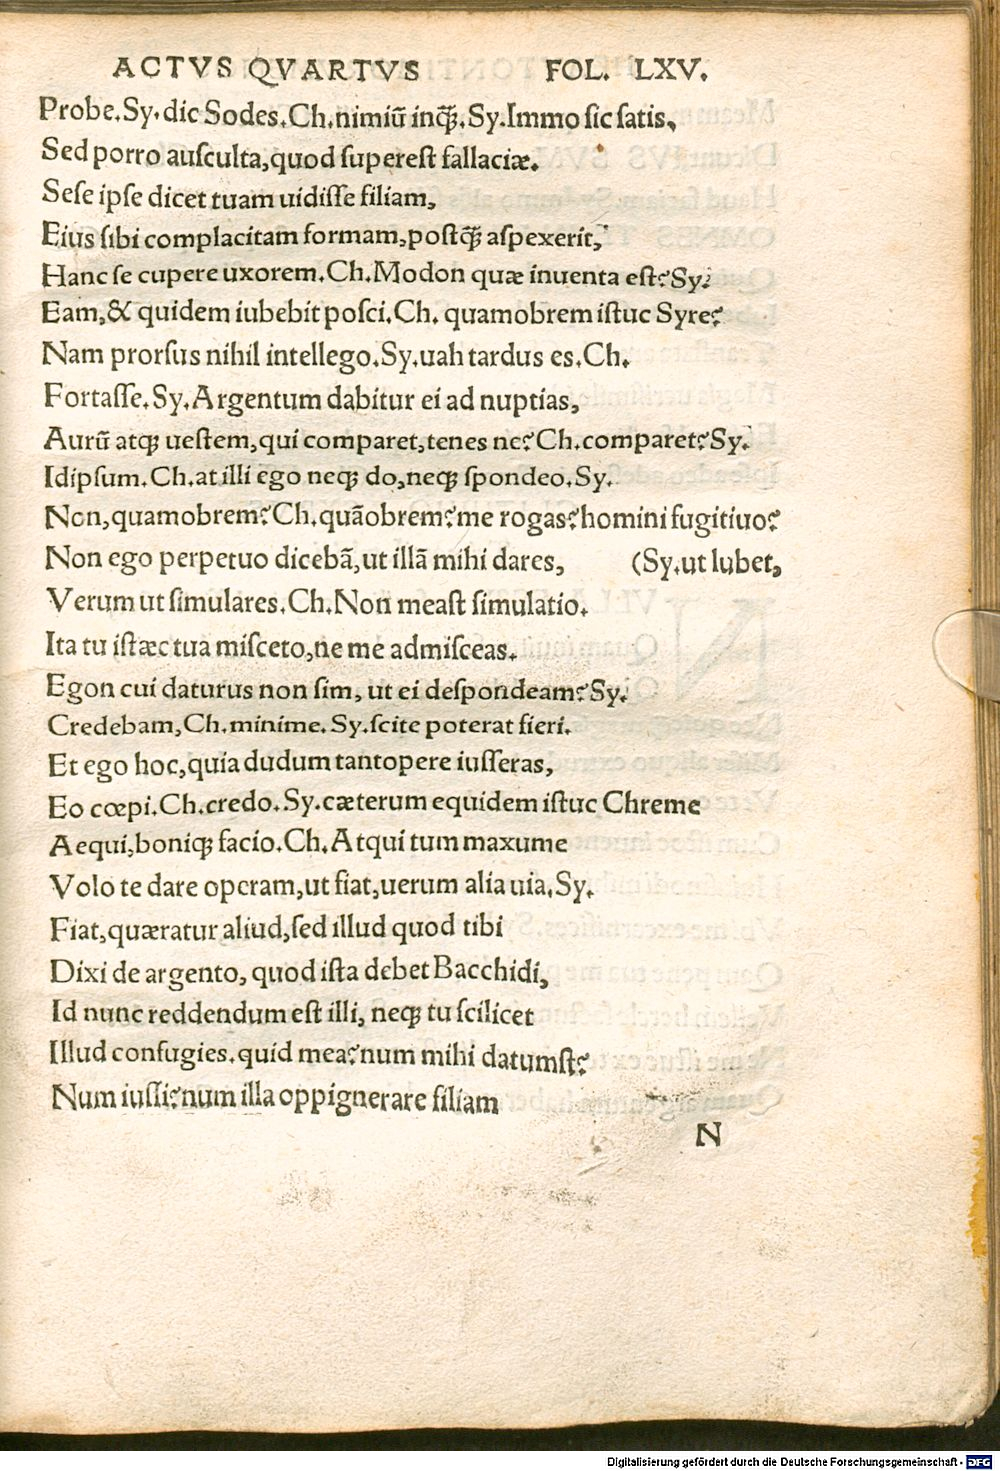 ACTVS QVARTVS FOL. LXV.
Probe.Sy.dic Sodes.Ch.nimiũ inꝗ̃.Sy.Immo sic satis,
Sed porro ausculta,quod superest fallaciæ.
Sese ipse dicet tuam uidisse filiam,
Eius sibi complacitam formam,postꝗ̃ aspexerit,
Hanc se cupere uxorem.Ch.Modon quæ inuenta est?Sy.
Eam,& quidem iubebit posci.Ch. quamobrem istuc Syre?
Nam prorsus nihil intellego.Sy.uah tardus es.Ch.
Fortasse.Sy.Argentum dabitur ei ad nuptias,
Aurũ atqꝫ uestem,qui comparet,tenes ne?Ch.comparet?Sy.
Idipsum.Ch.at illi ego neqꝫ do,neqꝫ spondeo.Sy.
Non,quamobrem?Ch.quãobrem?me rogas?homini fugitiuo?
Non ego perpetuo dicebã,ut illã mihi dares, (Sy.ut lubet,
Verum ut simulares.Ch.Non meast simulatio.
Ita tu istæc tua misceto,ne me admisceas.
Egon cui daturus non sim, ut ei despondeam?Sy.
Credebam,Ch.minime.Sy.scite poterat fieri.
Et ego hoc,quia dudum tantopere iusseras,
Eo cœpi.Ch.credo.Sy.cæterum equidem istuc Chreme
Aequi,boniqꝫ facio.Ch.Atqui tum maxume
Volo te dare operam,ut fiat,uerum alia uia.Sy.
Fiat,quæratur aliud,sed illud quod tibi
Dixi de argento, quod ista debet Bacchidi,
Id nunc reddendum est illi, neqꝫ tu scilicet
Illud confugies.quid mea?num mihi datumst?
Num iussi?num illa oppignerare filiam
N
Digitalisierung gefördert durch die Deutsche Forschungsgemeinschaft - DFG